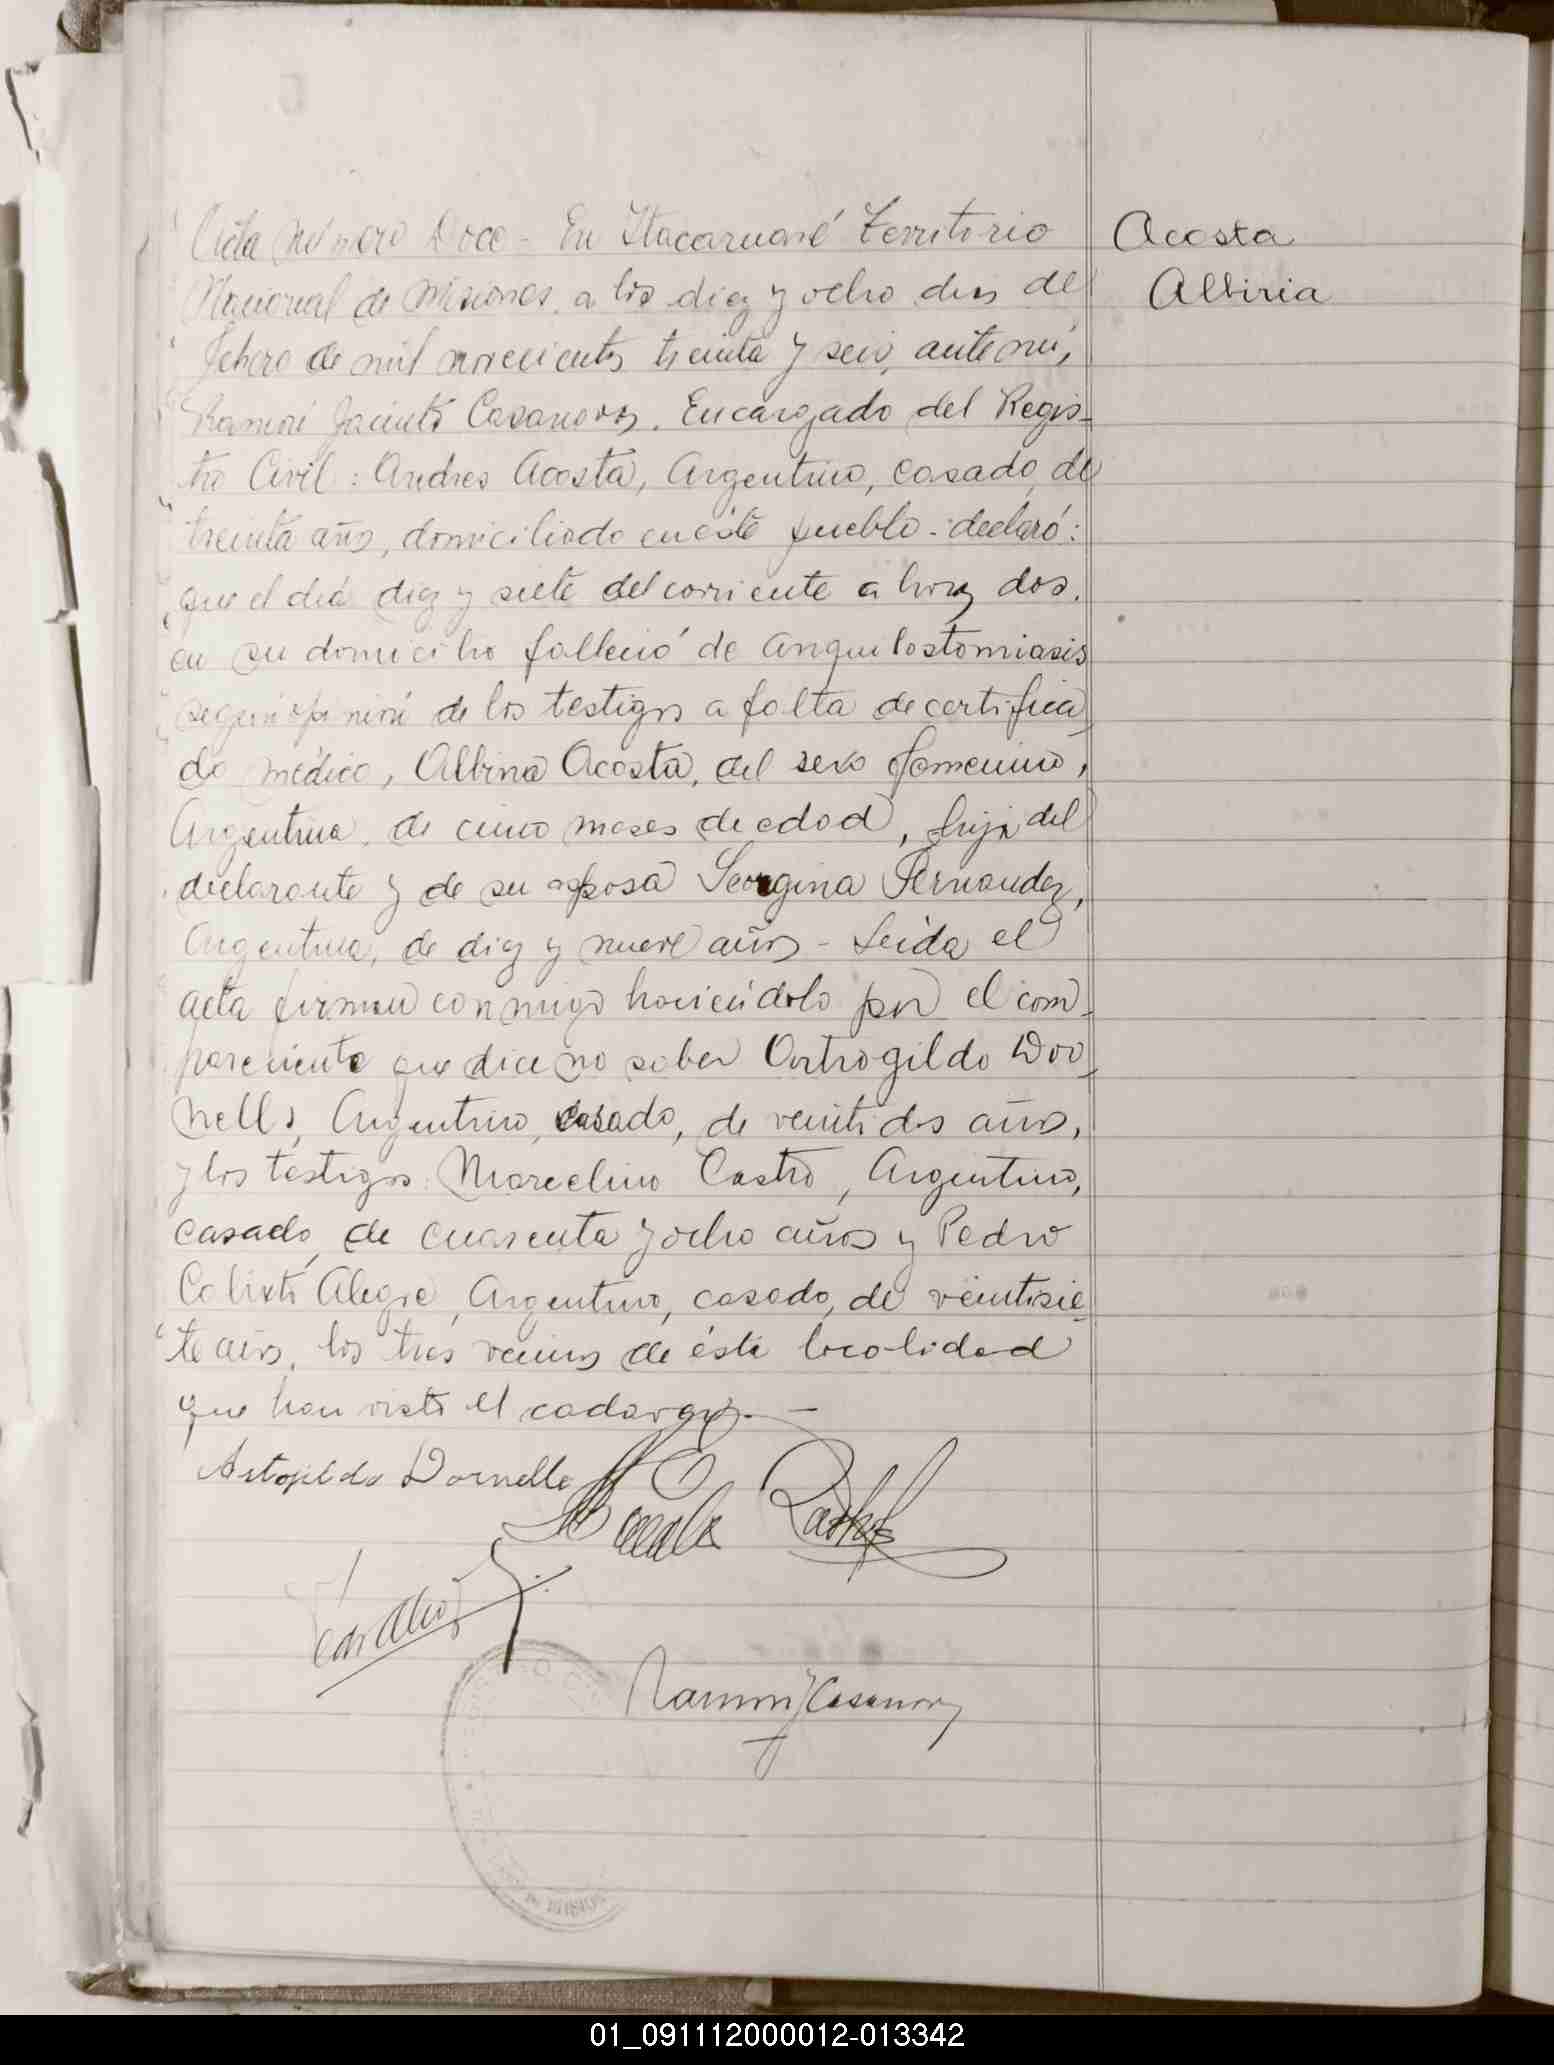 Acta número Doce - En Itacaruaré Territorio
Nacional de Misiones, a los diez y ocho dias del
Febrero de mil novecientos treinta y seis, ante mi,
Ramón Jacinto Casanova, Encargado del Regis-
tro Civil: Andres Acosta, Argentino, casado, de
treinta años, domiciliado en éste pueblo - declaró:
que el diá diez y siete del corriente a horas dos,
en su domicilio falleció de anquilostomiasis
según opinión de los testigos a falta de certifica
do médico, Albina Acosta, del sexo femenino,
Argentina, de cinco meses de edad, hija del
declarante y de su esposa Georgina Fernandez,
Argentina, de diez y nueve años - Leida el
acta firman conmigo haciéndolo por el com-
pareciente que dice no saber Ortrogildo Dor-
nell, Argentino, casado, de veintidos años,
y los testigos: Marcelino Castro, Argentino,
casado, de cuarenta y ocho años y Pedro
Calixto Alegre, Argentino, casado, de veintisie-
te años, los tres vecinos de ésta localidad
que han visto el cadaver. -
Acosta
Albiria
Artogildo Dornelle
Ramón J Casanova
01_091112000012-013342